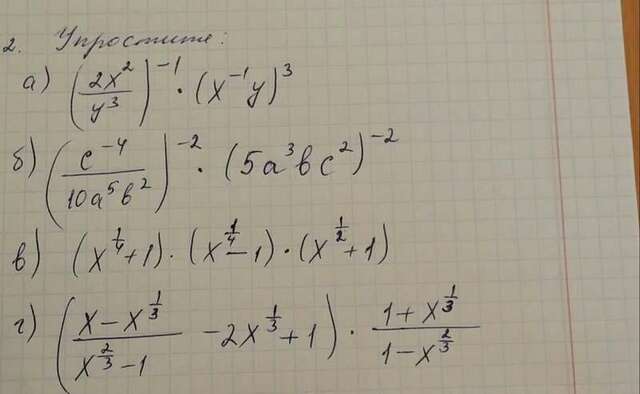 2. Упростите:
а) (2x²/y³)⁻¹ · (x⁻¹y)³
б) (c⁻⁴/10a⁵b²)⁻² · (5a³bc²)⁻²
в) (x^(1/4)+1) · (x^(1/4)-1) · (x^(1/2)+1)
г) ((x-x^(1/3))/(x^(2/3)-1) -2x^(1/3)+1) · (1+x^(1/3))/(1-x^(2/3))